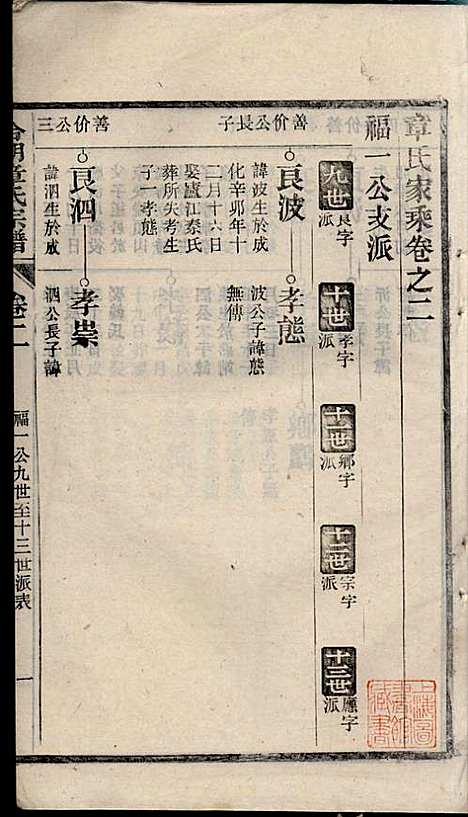 章氏家乘卷之二
福一公支派
九世良字派
十世孝字派
十一世鄉字派
十二世宗字派
十三世應字派
善价公長子
良波
諱波生於成
化辛卯年十
二月十六日
娶廬江秦氏
葬所失考生
子一孝態
孝態
波公子諱態
無傳
善价公三
良泗
諱泗生於成
孝崇
泗公長子諱
章氏宗譜
卷二
福一公九世至十三世派表
一
上海圖書館藏書